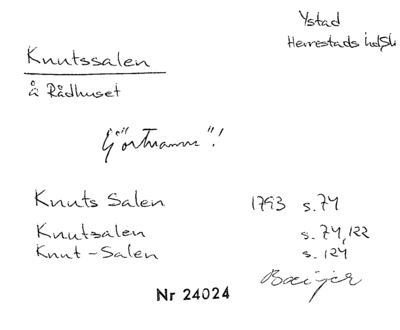 Ystad
Herrestads hd, Sk
Knutssalen
å Rådhuset
Ej "ortnamn"!
Knuts Salen 1793 s. 74
Knutsalen s. 74, 122
Knut-Salen s. 124
Boeijer
Nr 24024